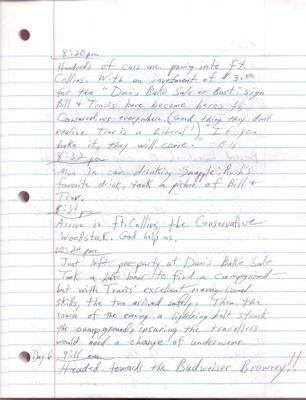 8:20 pm
Hundreds of cars are pouring into Ft.
Collins. With an investment of $3.00
for the "Dan's Bake Sale or Bust" sign
Bill & Travis have become heros to
Conservatives everywhere (and they don't
realize Trav is a Liberal!) "If you
bake it, they will come." - Bill
8:32 pm
Man in car drinking Snapple; Rush's
favorite drink, took a picture of Bill &
Trav.
8:34 pm
Arrive in Ft. Collins, the Conservative
Woodstock. God help us.
10:24 pm
Just left pre-party at Dan's Bake Sale
Took a half hour to find a campground
but with Travis' excellent navigational
skills, the two arrived safely. Then the
course of the evening a lightning bolt struck
the campgrounds, insuring the travellers
would need a change of underwear.
Day 6 9:11 am
Headed towards the Budweiser Brewery!!